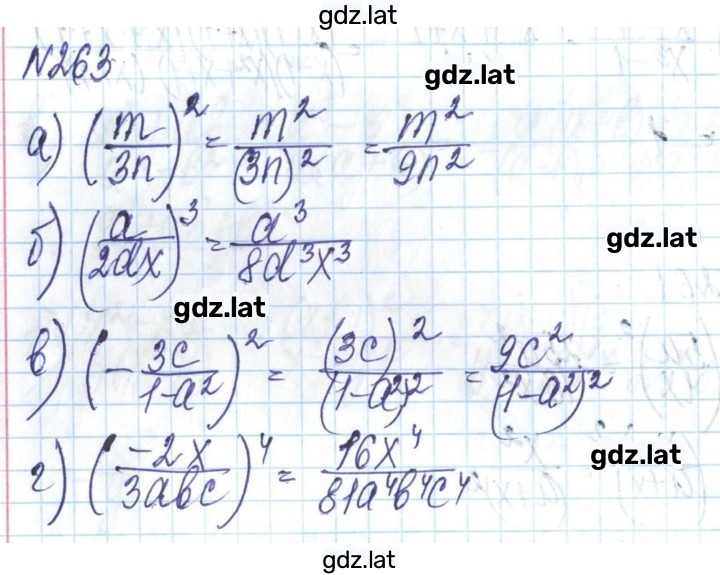 gdz.lat
№263
gdz.lat
а) (m/3n)² = m²/(3n)² = m²/9n²
б) (a/2dx)³ = a³/8d³x³
gdz.lat
gdz.lat
в) (- 3c/1-a²)² = (3c)²/(1-a²)² = 9c²/(1-a²)²
gdz.lat
г) (-2x/3abc)⁴ = 16x⁴/81a⁴b⁴c⁴
gdz.lat